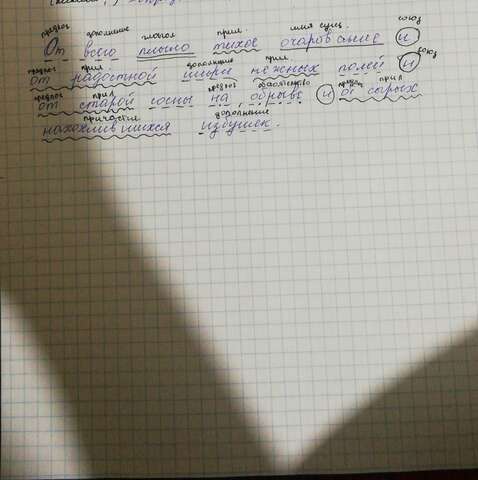 предлог дополнение глагол прил имя сущ. союз
От всего плыло тихое очарование и
предлог прил. дополнение прил. союз
от радостной шири нежных полей и
предлог прил предлог обстоятельство предлог прил
от старой сосны на, обрыве и от сырых
причастие дополнение
нахохлившихся избушек.